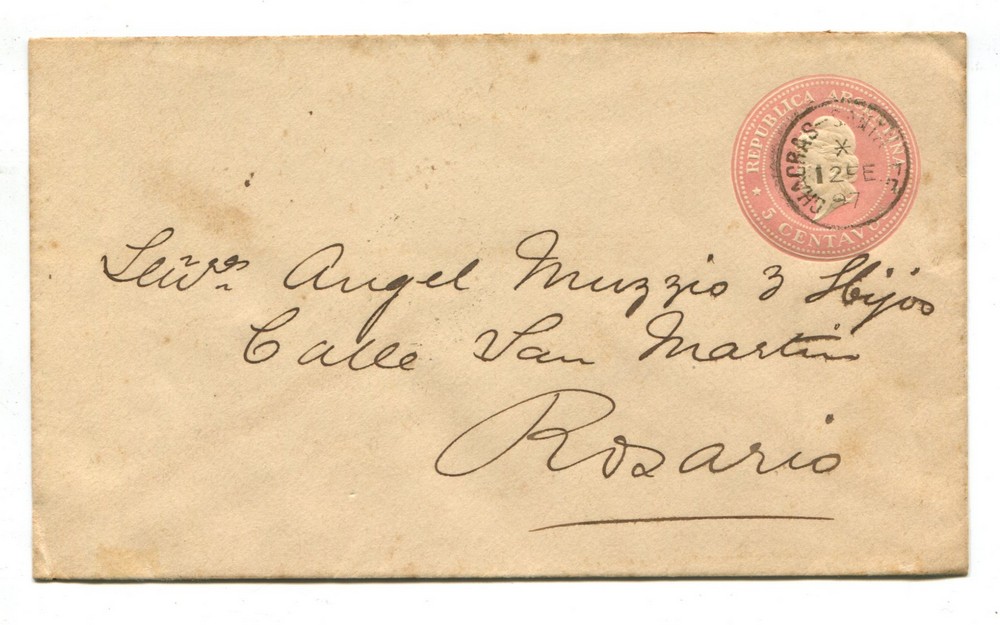 REPUBLICA ARGENTINA
5 CENTAVOS
CHACRAS SANTA FE
12 FE
97
Señres Angel Muzzio y Hijos
Calle San Martin
Rosario